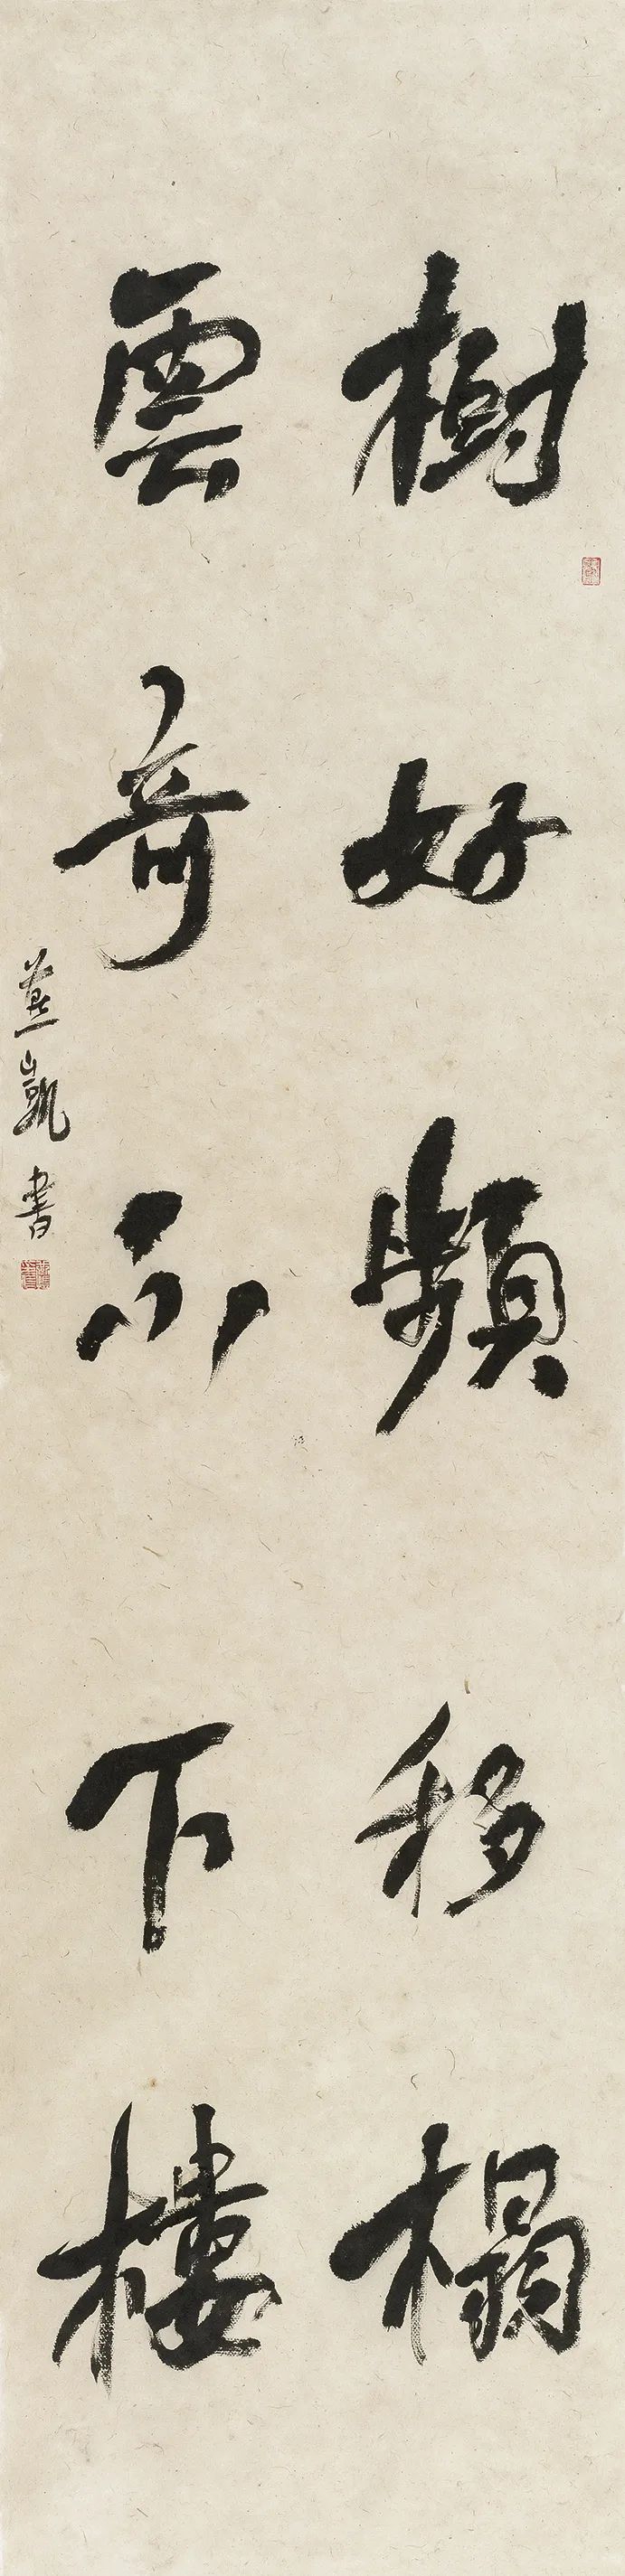 樹好頻移榻
雲奇不下樓
燕凱書